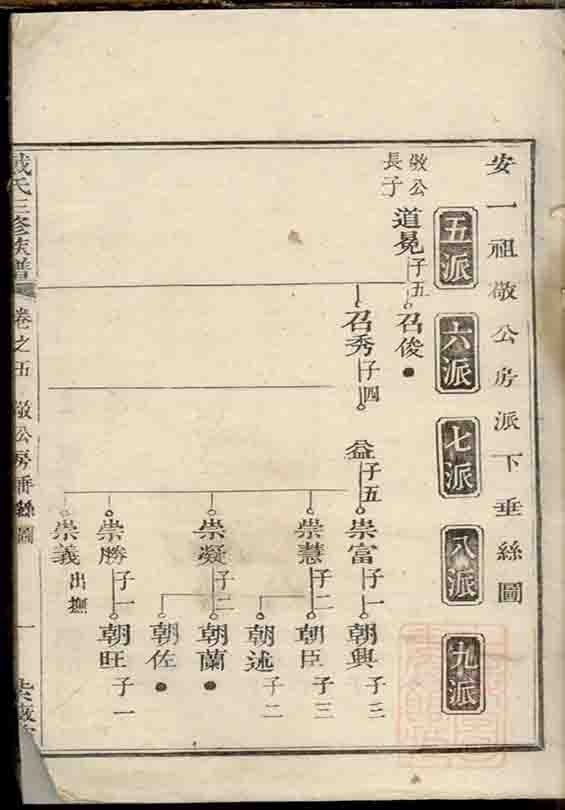 安一祖敬公房派下垂絲圖
五派
六派
七派
八派
九派
敬公長子
道冕
子五
召俊
召秀
子四
益
子五
崇富
子一
朝興
子三
崇慧
子二
朝臣
子三
朝述
子二
崇凝
子二
朝蘭
朝佐
崇勝
子一
朝旺
子一
崇義
出撫
氏三修族譜
卷之五
敬公房垂絲圖
一